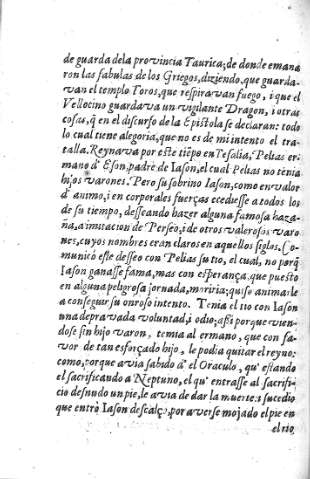 de guarda dela provincia Taurica; de donde emana
ron las fabulas de los Griegos, diziendo, que guarda-
van el templo Toros, que respiravan fuego, i que el
Vellocino guardava un vigilante Dragon, i otras
cosas, q̃ en el discurso de la Epistola se declaran: todo
lo cual tiene alegoria, que no es de mi intento el tra-
talla. Reynava por este tiẽpo en Tesalia, Pelias er-
mano d' Eson, padre de Iason, el cual Pelias no tenia
hijos varones. Pero su sobrino Iason, como en valor
d' animo, i en corporales fuerças ecediesse a todos los
de su tiempo, desseando hazer alguna famosa haza-
ña, a imitacion de Perseo, i de otros valerosos varo-
nes, cuyos nombres eran claros en aquellos siglos. Co-
municò este desseo con Pelias su tio, el cual, no porq̃
Iason ganasse fama, mas con esperança que puesto
en alguna peligrosa jornada, moriria; quiso animarle
a conseguir su onroso intento. Tenia el tio con Iason
una depravada voluntad, i odio; assi porque vien-
dose sin hijo varon, temia al ermano, que con fa-
vor de tan esforçado hijo, le podia quitar el reyno:
como, porque avia sabido d' el Oraculo, qu' estando
el sacrificando a Neptuno, el qu' entrasse al sacrifi-
cio desnudo un pie, le avia de dar la muerte: i sucedio
que entrò Iason descalço, por averse mojado el pie en
el rio